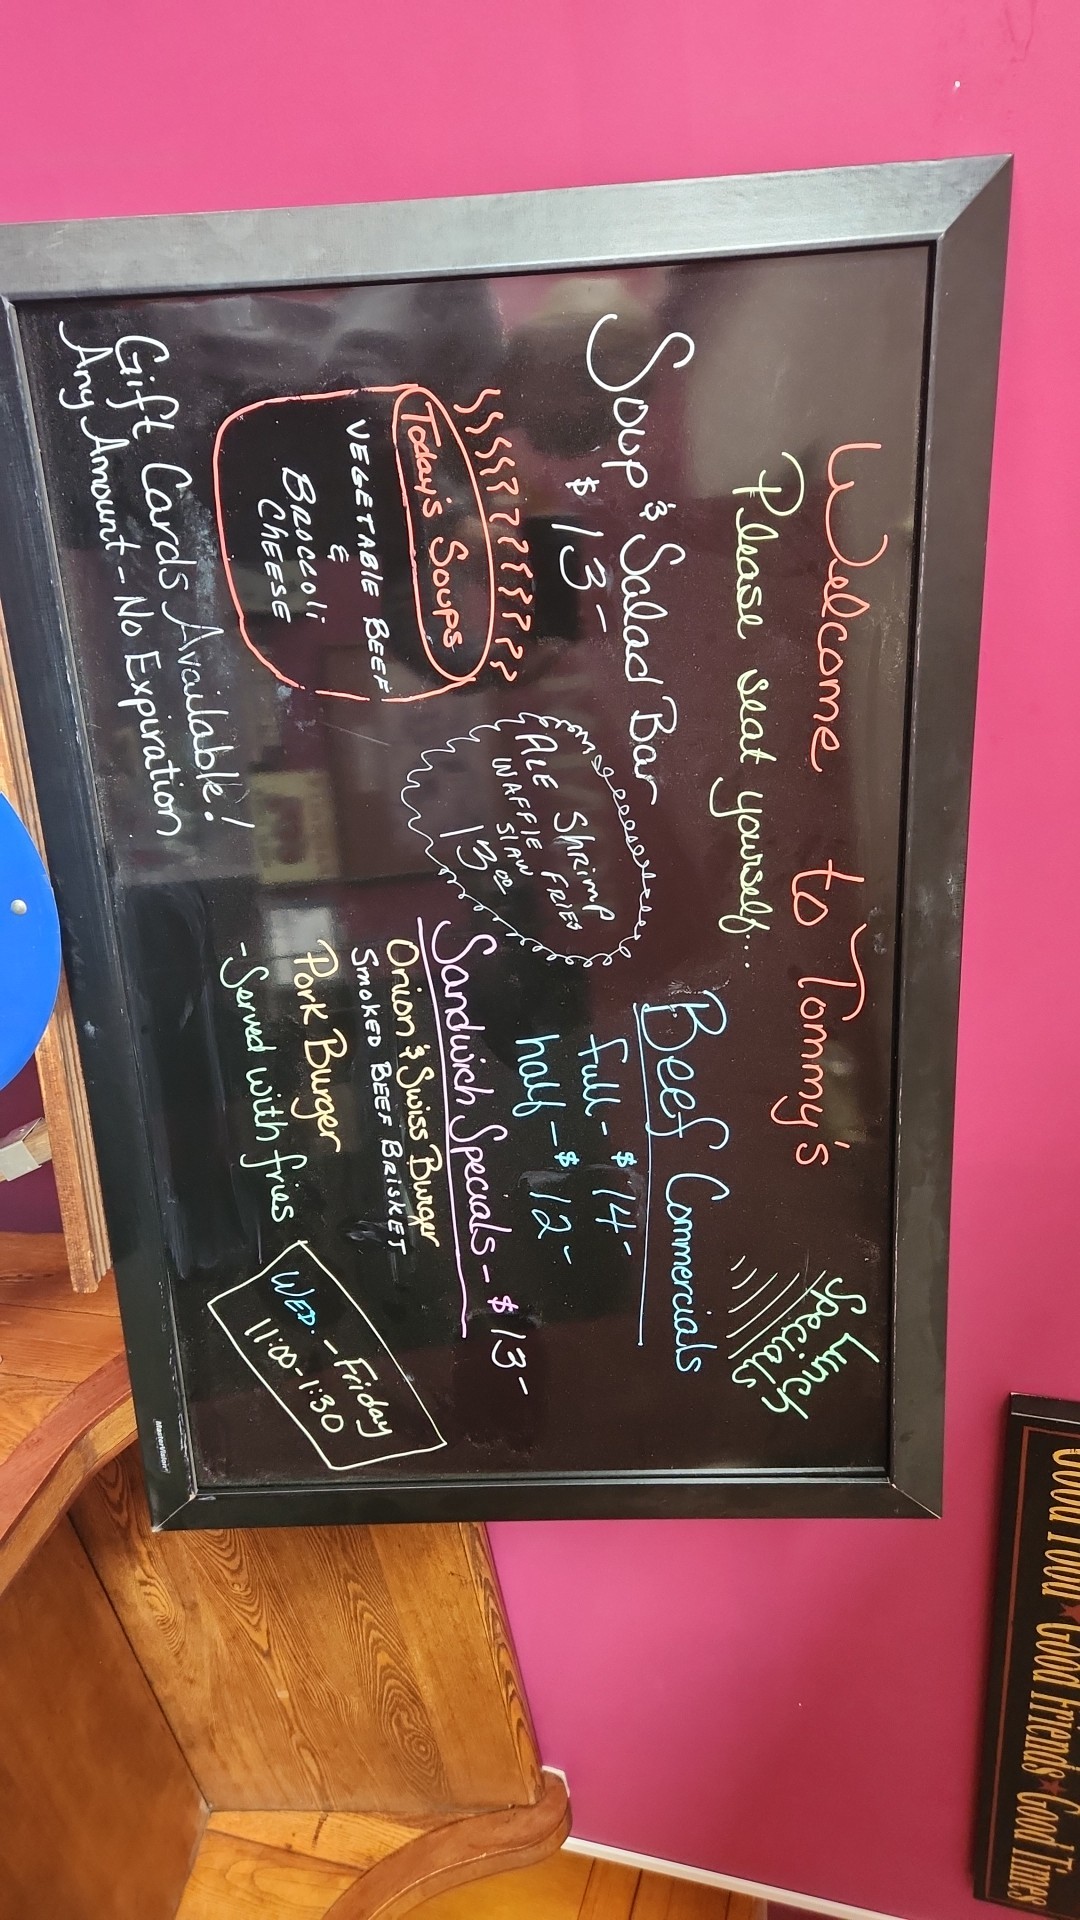 Welcome to Tommy's
Please seat yourself...
Lunch
Specials
Soup & Salad Bar
$13-
Beef Commercials
full - $14-
half - $12-
Ale Shrimp
Waffle Fries
Slaw
13.00
Today's Soups
Vegetable Beef
&
Broccoli
Cheese
Sandwich Specials - $13-
Onion & Swiss Burger
Smoked Beef Brisket
Pork Burger
- Served with fries
Wed. - Friday
11:00-1:30
Gift Cards Available!
Any Amount - No Expiration
MasterVision
Good Food ★ Good Friends ★ Good Times